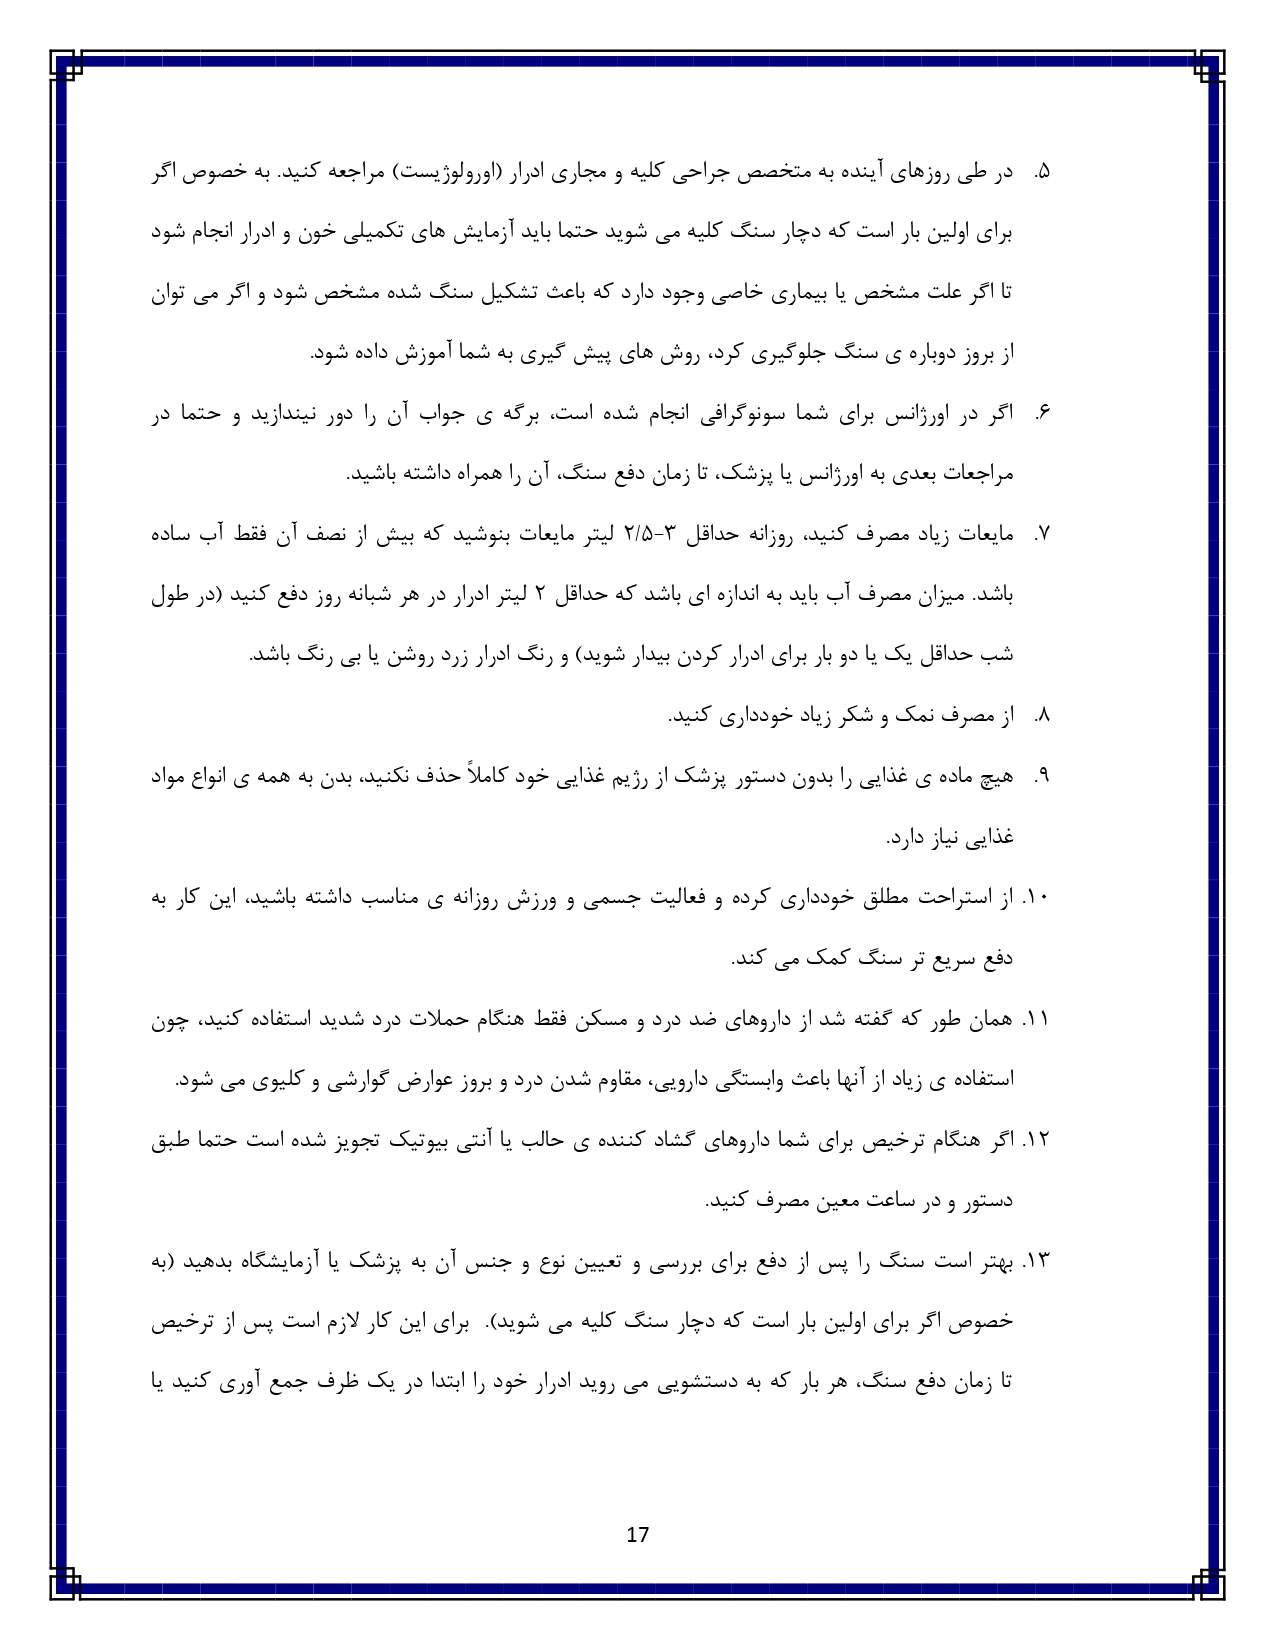 ۵. در طی روزهای آینده به متخصص جراحی کلیه و مجاری ادرار (اورولوژیست) مراجعه کنید. به خصوص اگر
برای اولین بار است که دچار سنگ کلیه می شوید حتما باید آزمایش های تکمیلی خون و ادرار انجام شود
تا اگر علت مشخص یا بیماری خاصی وجود دارد که باعث تشکیل سنگ شده مشخص شود و اگر می توان
از بروز دوباره ی سنگ جلوگیری کرد، روش های پیش گیری به شما آموزش داده شود.
۶. اگر در اورژانس برای شما سونوگرافی انجام شده است، برگه ی جواب آن را دور نیندازید و حتما در
مراجعات بعدی به اورژانس یا پزشک، تا زمان دفع سنگ، آن را همراه داشته باشید.
۷. مایعات زیاد مصرف کنید، روزانه حداقل ۳-۲/۵ لیتر مایعات بنوشید که بیش از نصف آن فقط آب ساده
باشد. میزان مصرف آب باید به اندازه ای باشد که حداقل ۲ لیتر ادرار در هر شبانه روز دفع کنید (در طول
شب حداقل یک یا دو بار برای ادرار کردن بیدار شوید) و رنگ ادرار زرد روشن یا بی رنگ باشد.
۸. از مصرف نمک و شکر زیاد خودداری کنید.
۹. هیچ ماده ی غذایی را بدون دستور پزشک از رژیم غذایی خود کاملاً حذف نکنید، بدن به همه ی انواع مواد
غذایی نیاز دارد.
۱۰. از استراحت مطلق خودداری کرده و فعالیت جسمی و ورزش روزانه ی مناسب داشته باشید، این کار به
دفع سریع تر سنگ کمک می کند.
۱۱. همان طور که گفته شد از داروهای ضد درد و مسکن فقط هنگام حملات درد شدید استفاده کنید، چون
استفاده ی زیاد از آنها باعث وابستگی دارویی، مقاوم شدن درد و بروز عوارض گوارشی و کلیوی می شود.
۱۲. اگر هنگام ترخیص برای شما داروهای گشاد کننده ی حالب یا آنتی بیوتیک تجویز شده است حتما طبق
دستور و در ساعت معین مصرف کنید.
۱۳. بهتر است سنگ را پس از دفع برای بررسی و تعیین نوع و جنس آن به پزشک یا آزمایشگاه بدهید (به
خصوص اگر برای اولین بار است که دچار سنگ کلیه می شوید). برای این کار لازم است پس از ترخیص
تا زمان دفع سنگ، هر بار که به دستشویی می روید ادرار خود را ابتدا در یک ظرف جمع آوری کنید یا
17